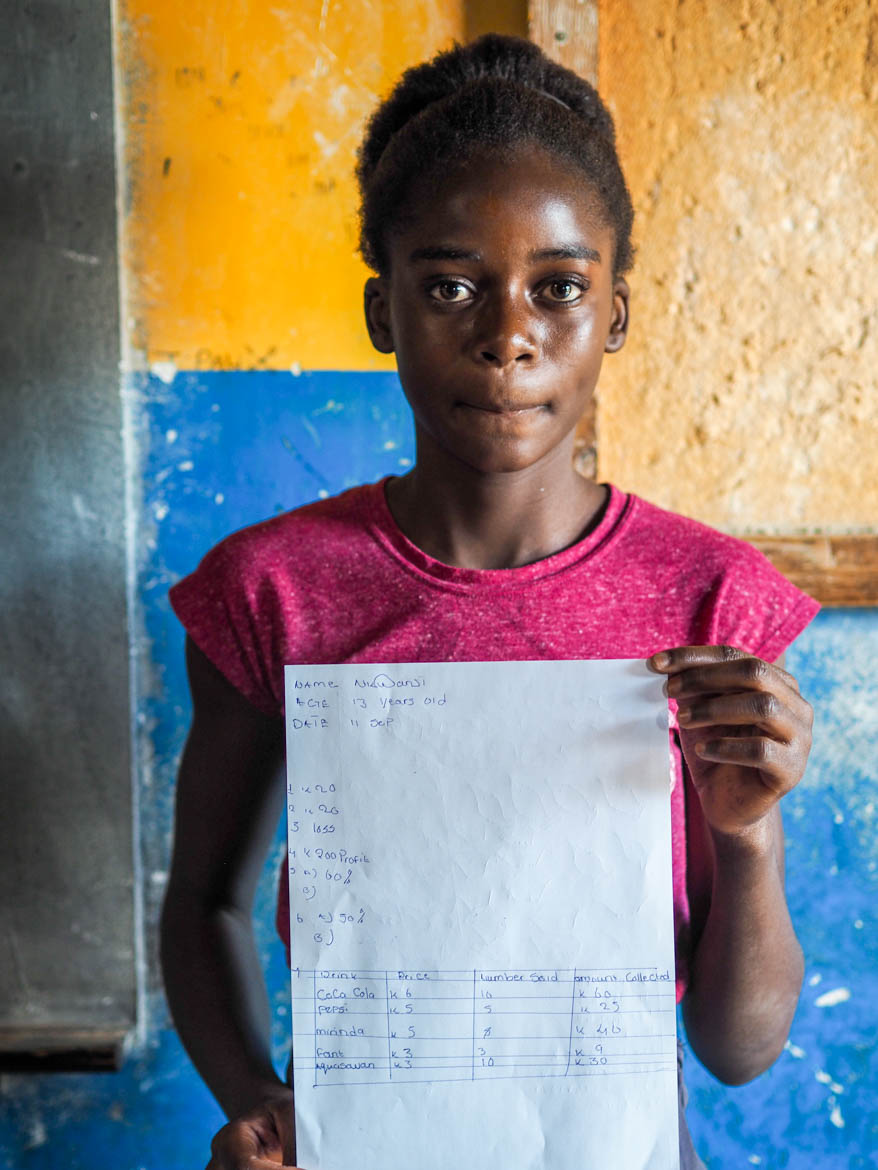 NAME: Nkwanji
AGE 13 years old
DATE 11 Sep
1 K20
2 K20
3 loss
4 K200 Profit
5 A) 60%
B)
6 A) 50%
B)
7 Drink Price Number Sold amount Collected
CoCa Cola K 6 10 K 60
Pepsi K 5 5 K 25
mirinda K 5 8 K 40
Fant K 3 3 K 9
Aquasavan K 3 10 K 30